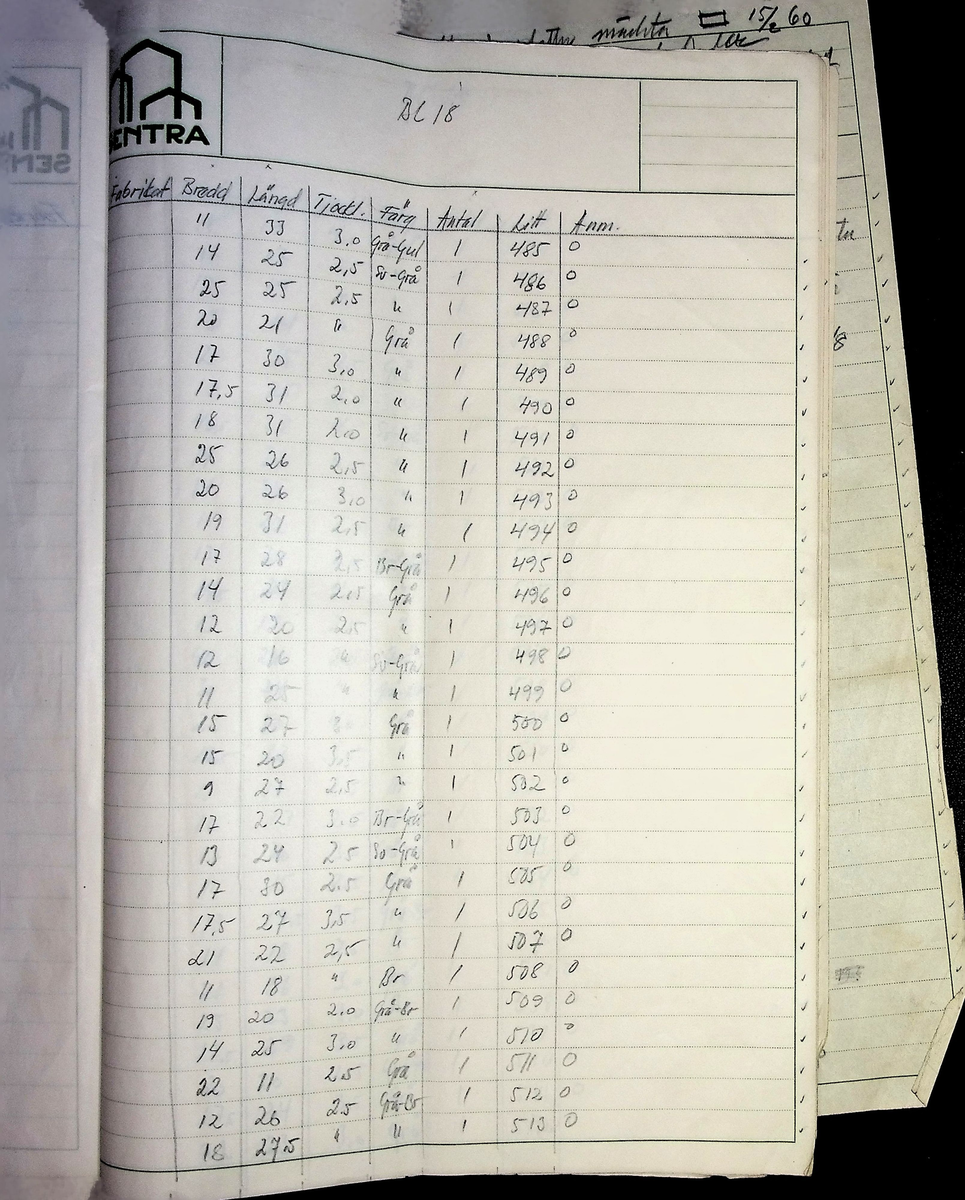 15/2 60
mächta
SENTRA
BL 18
Fabrikat Bredd Längd Tjockl. Färg Antal Litt Anm.
11 33 3,0 Grå-Gul 1 485 0
14 25 2,5 Sv-Grå 1 486 0
25 25 2,5 " 1 487 0
20 21 " Grå 1 488 0
17 30 3,0 " 1 489 0
17,5 31 2,0 " 1 490 0
18 31 2,0 " 1 491 0
25 26 2,5 " 1 492 0
20 26 3,0 " 1 493 0
19 31 2,5 " 1 494 0
17 28 2,5 Br-Grå 1 495 0
14 24 2,5 Grå 1 496 0
12 20 2,5 " 1 497 0
12 16 " Sv-Grå 1 498 0
11 25 " " 1 499 0
15 27 3 Grå 1 500 0
15 20 3,5 " 1 501 0
9 27 2,5 " 1 502 0
17 22 3.0 Br-Grå 1 503 0
13 24 2.5 Sv-Grå 1 504 0
17 30 2.5 Grå 1 505 0
17,5 27 3,5 " 1 506 0
21 22 2,5 " 1 507 0
11 18 " Br 1 508 0
19 20 2.0 Grå-Br 1 509 0
14 25 3,0 " 1 510 0
22 11 2,5 Grå 1 511 0
12 26 2.5 Grå-Br 1 512 0
18 27,5 " " 1 513 0